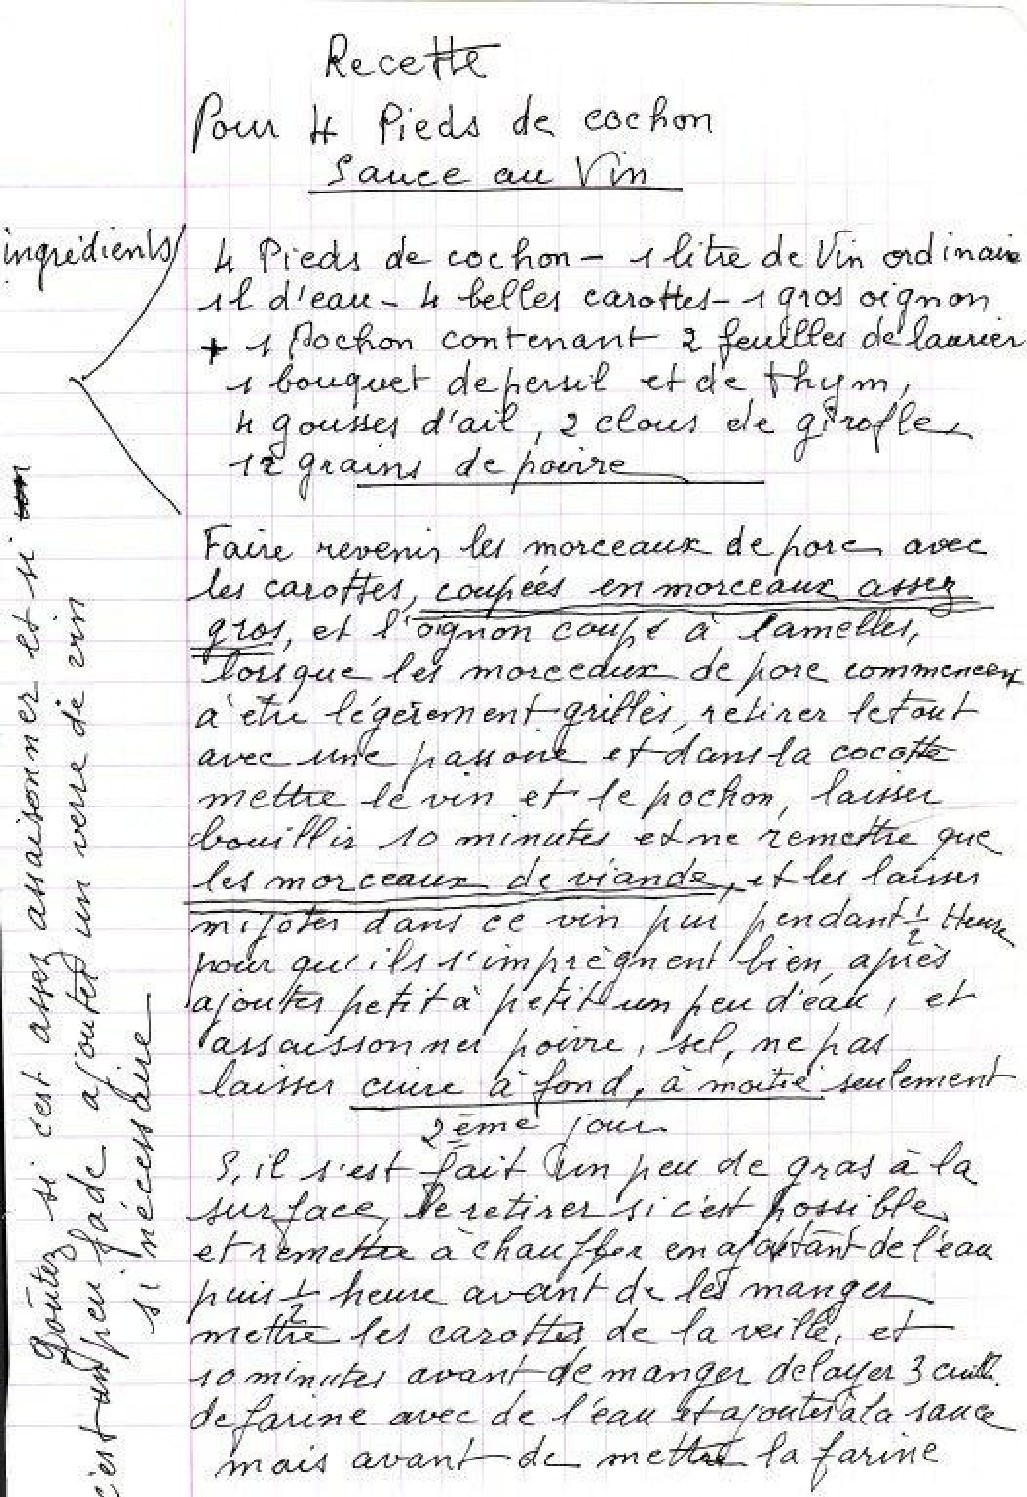 Recette
Pour 4 Pieds de cochon
Sauce au Vin
ingrédients
4 Pieds de cochon - 1 litre de Vin ordinaire
1 l d'eau - 4 belles carottes - 1 gros oignon
+ 1 Pochon contenant 2 feuilles de laurier
1 bouquet de persil et de thym,
4 gousses d'ail, 2 clous de girofles
12 grains de poivre
Faire revenir les morceaux de porc avec
les carottes, coupées en morceaux assez
gros, et l'oignon coupé à lamelles,
lorsque les morceaux de porc commencent
à etre légèrement grillés, retirer le tout
avec une passoire et dans la cocotte
mettre le vin et le pochon, laisser
bouillir 10 minutes et ne remettre que
les morceaux de viande, et les laisser
mijoter dans ce vin pur pendant 1/2 Heure
pour qu'ils s'imprègnent bien, après
ajouter petit à petit un peu d'eau, et
assaissonner poivre, sel, ne pas
laisser cuire à fond, à moitié seulement
2ème jour
S, il s'est fait un peu de gras à la
surface, le retirer si c'est possible,
et remettre à chauffer en ajoutant de l'eau
puis 1/2 heure avant de les manger
mettre les carottes de la veille, et
10 minutes avant de manger delayer 3 cuill.
de farine avec de l'eau et ajouter à la sauce
mais avant de mettre la farine
goûter si c'est assez assaisonner et si
c'est un peu fade ajouter un verre de vin
si nécessaire